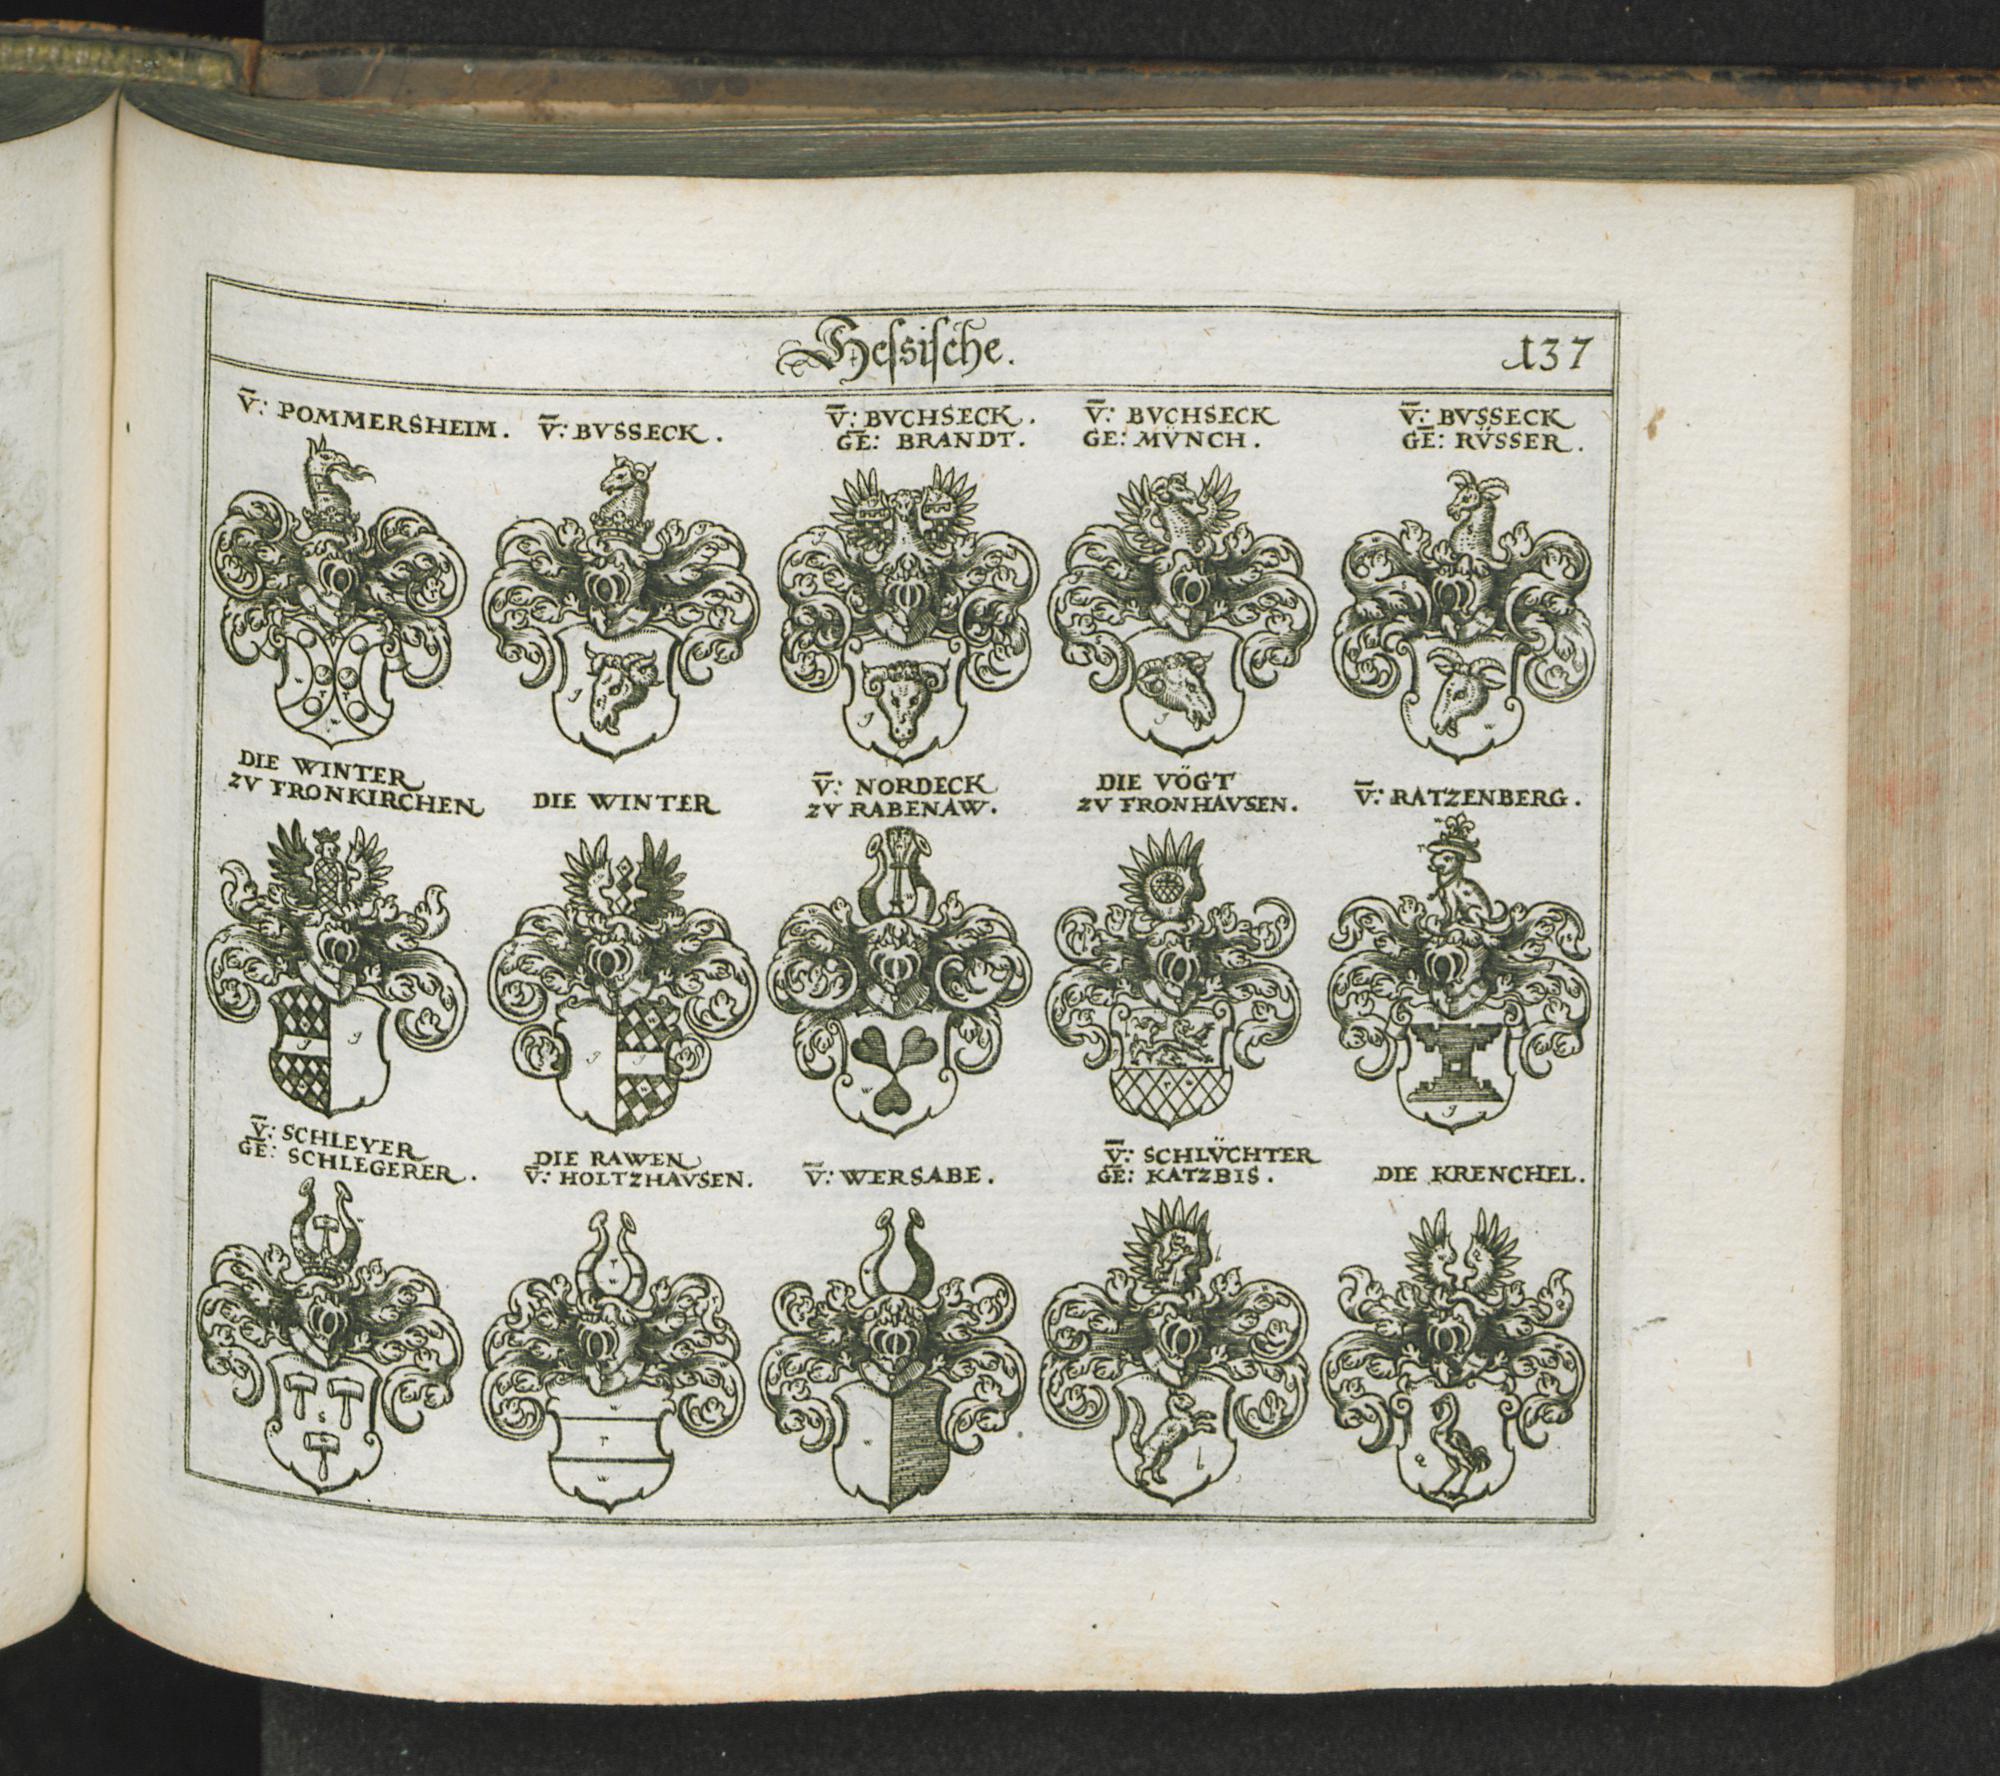 Hessische.
137
V̄: POMMERSHEIM.
V̄: BVSSECK.
V̄: BVCHSECK.
GE: BRANDT.
V̄: BVCHSECK
GE: MVNCH.
V̄: BVSSECK
GE: RÜSSER.
DIE WINTER
ZV FRONKIRCHEN
DIE WINTER
V̄: NORDECK
ZV RABENAW.
DIE VÖGT
ZV FRONHAVSEN.
V̄: RATZENBERG.
V̄: SCHLEYER
GE: SCHLEGERER.
DIE RAWEN
V̄: HOLTZHAVSEN.
V̄: WERSABE.
V̄: SCHLÜCHTER
GE: KATZBIS.
DIE KRENCHEL.